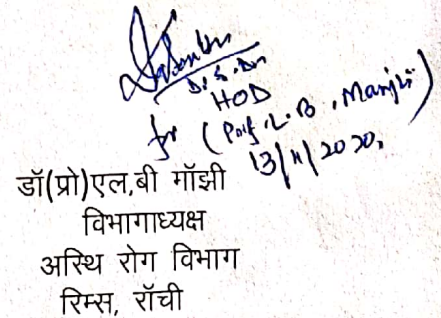 HOD
for (Prof. L. B. Manjhi)
13/11/2020,
डॉ(प्रो)एल,बी मॉझी
विभागाध्यक्ष
अस्थि रोग विभाग
रिम्स, रॉची